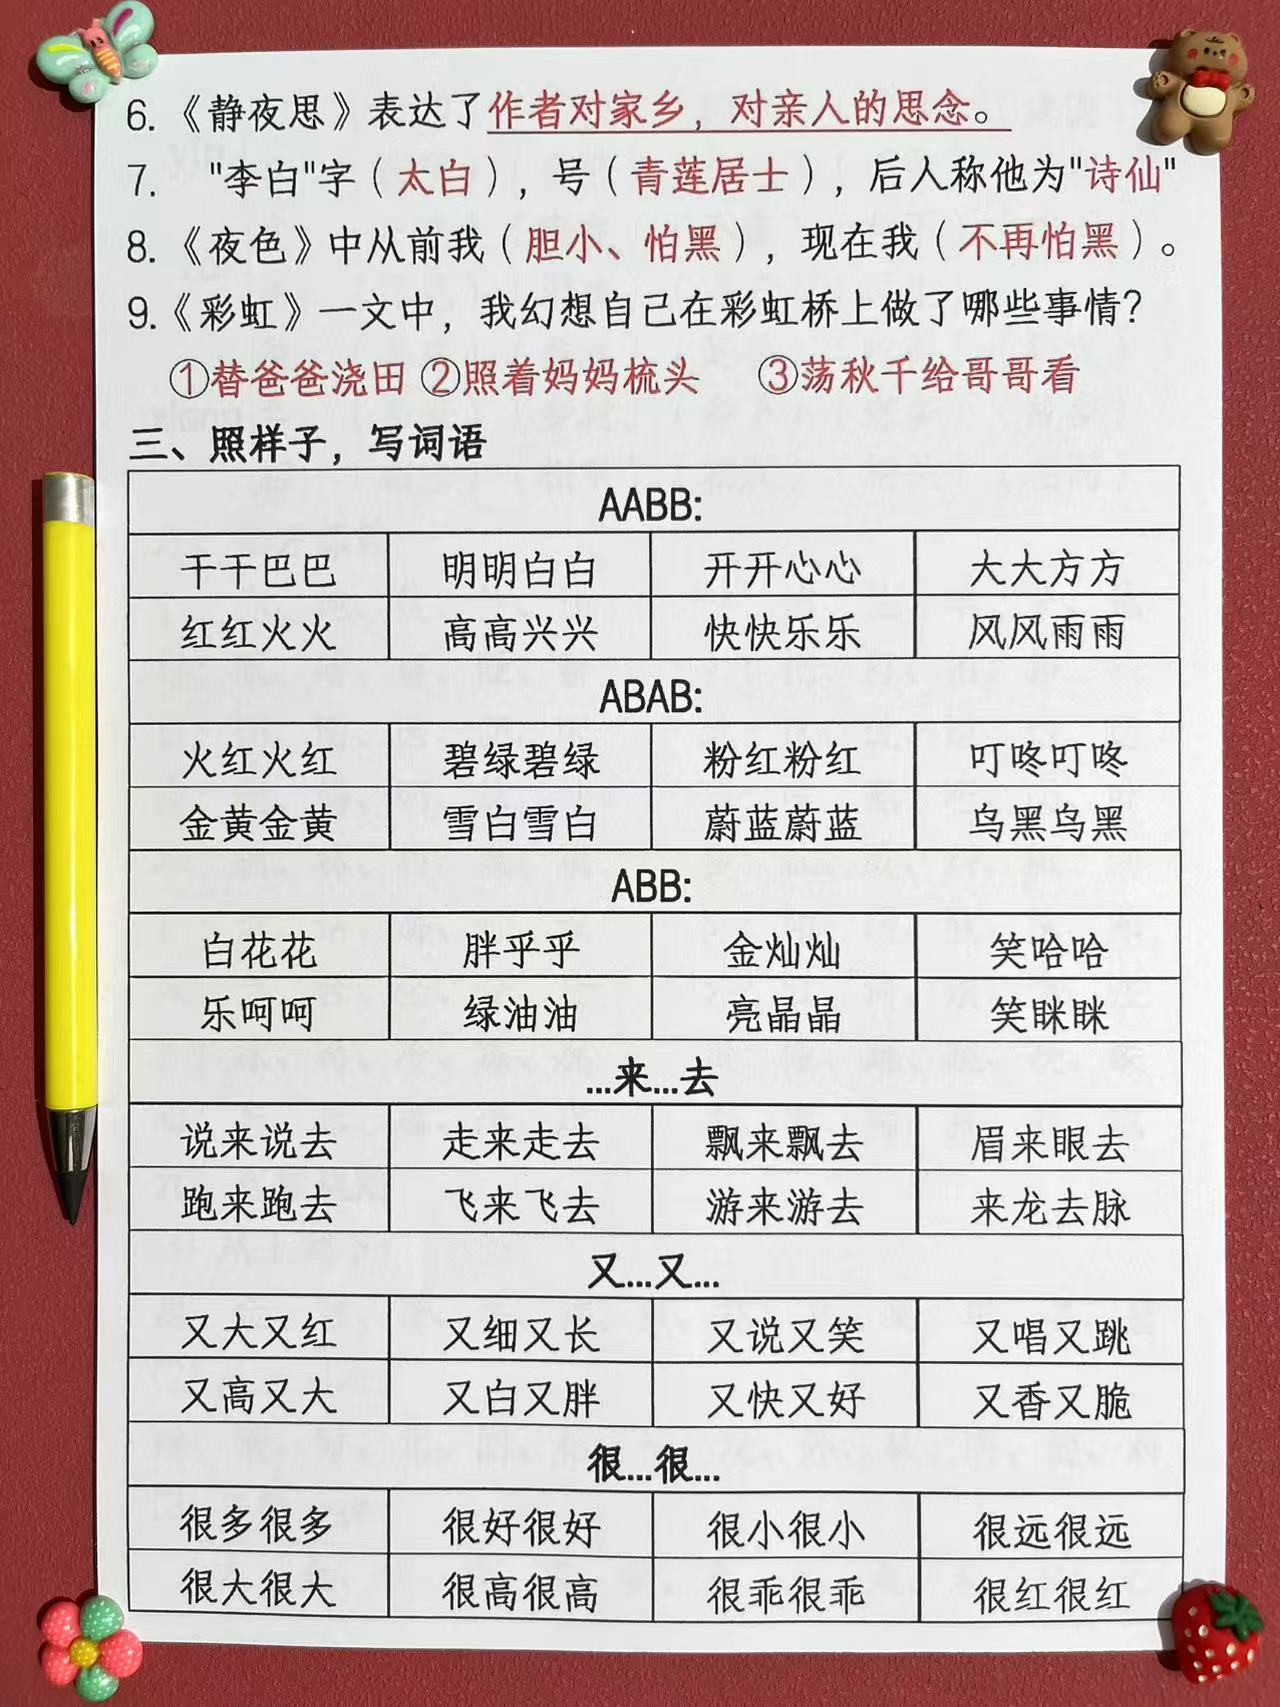 6.《静夜思》表达了作者对家乡，对亲人的思念。
7. "李白"字（太白），号（青莲居士），后人称他为"诗仙"
8.《夜色》中从前我（胆小、怕黑），现在我（不再怕黑）。
9.《彩虹》一文中，我幻想自己在彩虹桥上做了哪些事情?
①替爸爸浇田 ②照着妈妈梳头 ③荡秋千给哥哥看
三、照样子，写词语
AABB:
干干巴巴 明明白白 开开心心 大大方方
红红火火 高高兴兴 快快乐乐 风风雨雨
ABAB:
火红火红 碧绿碧绿 粉红粉红 叮咚叮咚
金黄金黄 雪白雪白 蔚蓝蔚蓝 乌黑乌黑
ABB:
白花花 胖乎乎 金灿灿 笑哈哈
乐呵呵 绿油油 亮晶晶 笑眯眯
...来...去
说来说去 走来走去 飘来飘去 眉来眼去
跑来跑去 飞来飞去 游来游去 来龙去脉
又...又...
又大又红 又细又长 又说又笑 又唱又跳
又高又大 又白又胖 又快又好 又香又脆
很...很...
很多很多 很好很好 很小很小 很远很远
很大很大 很高很高 很乖很乖 很红很红